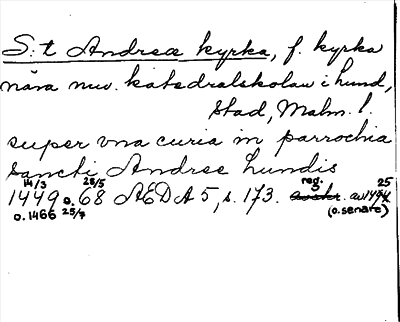 S:t Andreæ kyrka, f. kyrka
nära nuv. katedralskolan i Lund,
stad, Malm. l.
super vna curia in parrochia
sancti Andree Lundis
14/3 28/5 reg. 25
1449 o. 68 ÆDA 5, s. 173. av 149
o. 1466 25/7 (o. senare)